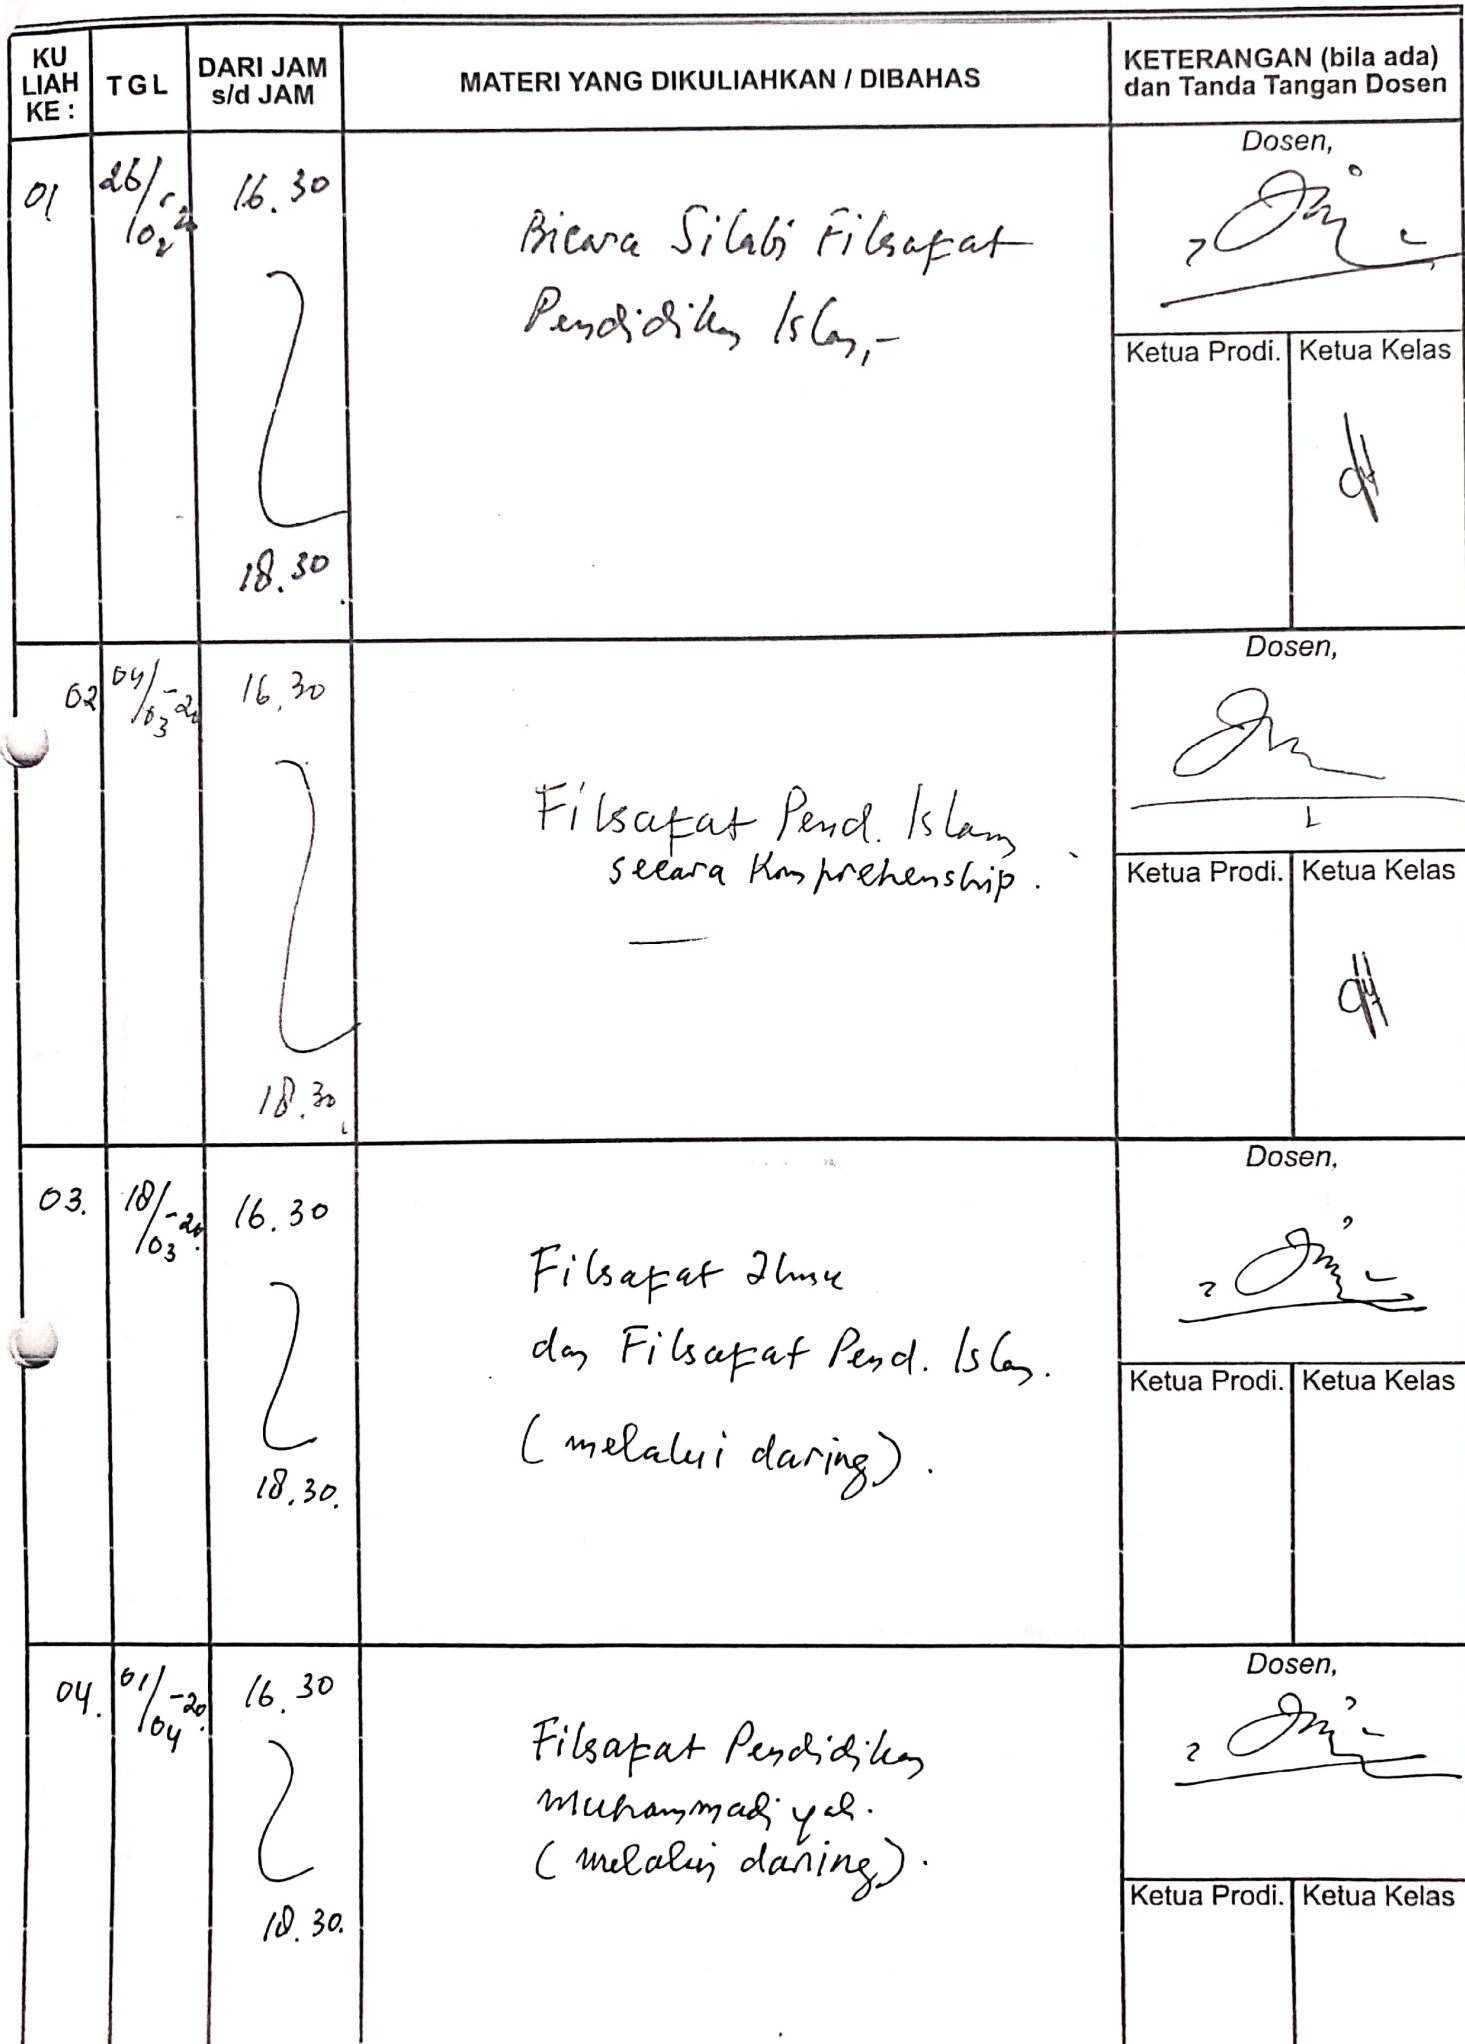 KU LIAH KE :
TGL
DARI JAM s/d JAM
MATERI YANG DIKULIAHKAN / DIBAHAS
KETERANGAN (bila ada) dan Tanda Tangan Dosen
01
26/02-20
16.30
18.30
Bicara Silabi Filsafat
Pendidikan Islam,-
Dosen,
Ketua Prodi.
Ketua Kelas
02
04/03-20
16.30
18.30
Filsafat Pend. Islam
secara Komprehenship.
Dosen,
Ketua Prodi.
Ketua Kelas
03.
18/03-20.
16.30
18.30.
Filsafat Ilmu
dan Filsafat Pend. Islam.
(melalui daring).
Dosen,
Ketua Prodi.
Ketua Kelas
04.
01/04-20.
16.30
18.30.
Filsafat Pendidikan
Muhammadiyah.
(melalui daring).
Dosen,
Ketua Prodi.
Ketua Kelas